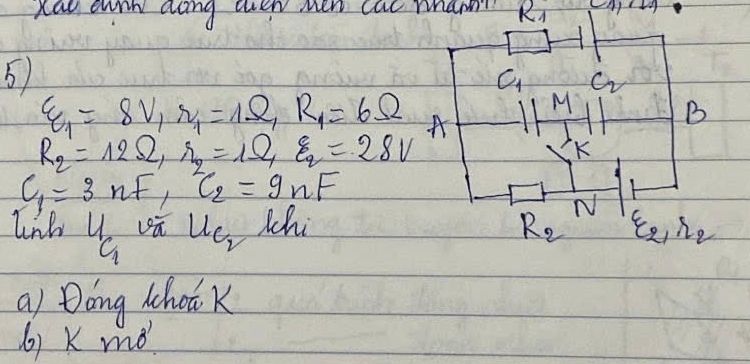 Xác định dòng điện trên các nhánh.
R₁
5)
ℰ₁ = 8V, r₁ = 1Ω, R₁ = 6Ω
R₂ = 12Ω, r₂ = 1Ω, ℰ₂ = 28V
C₁ = 3 nF, C₂ = 9nF
Tính U_C₁ và U_C₂ khi
a) Đóng khoá K
b) K mở
C₁ C₂
A M B
K
N
R₂ ℰ₂, r₂